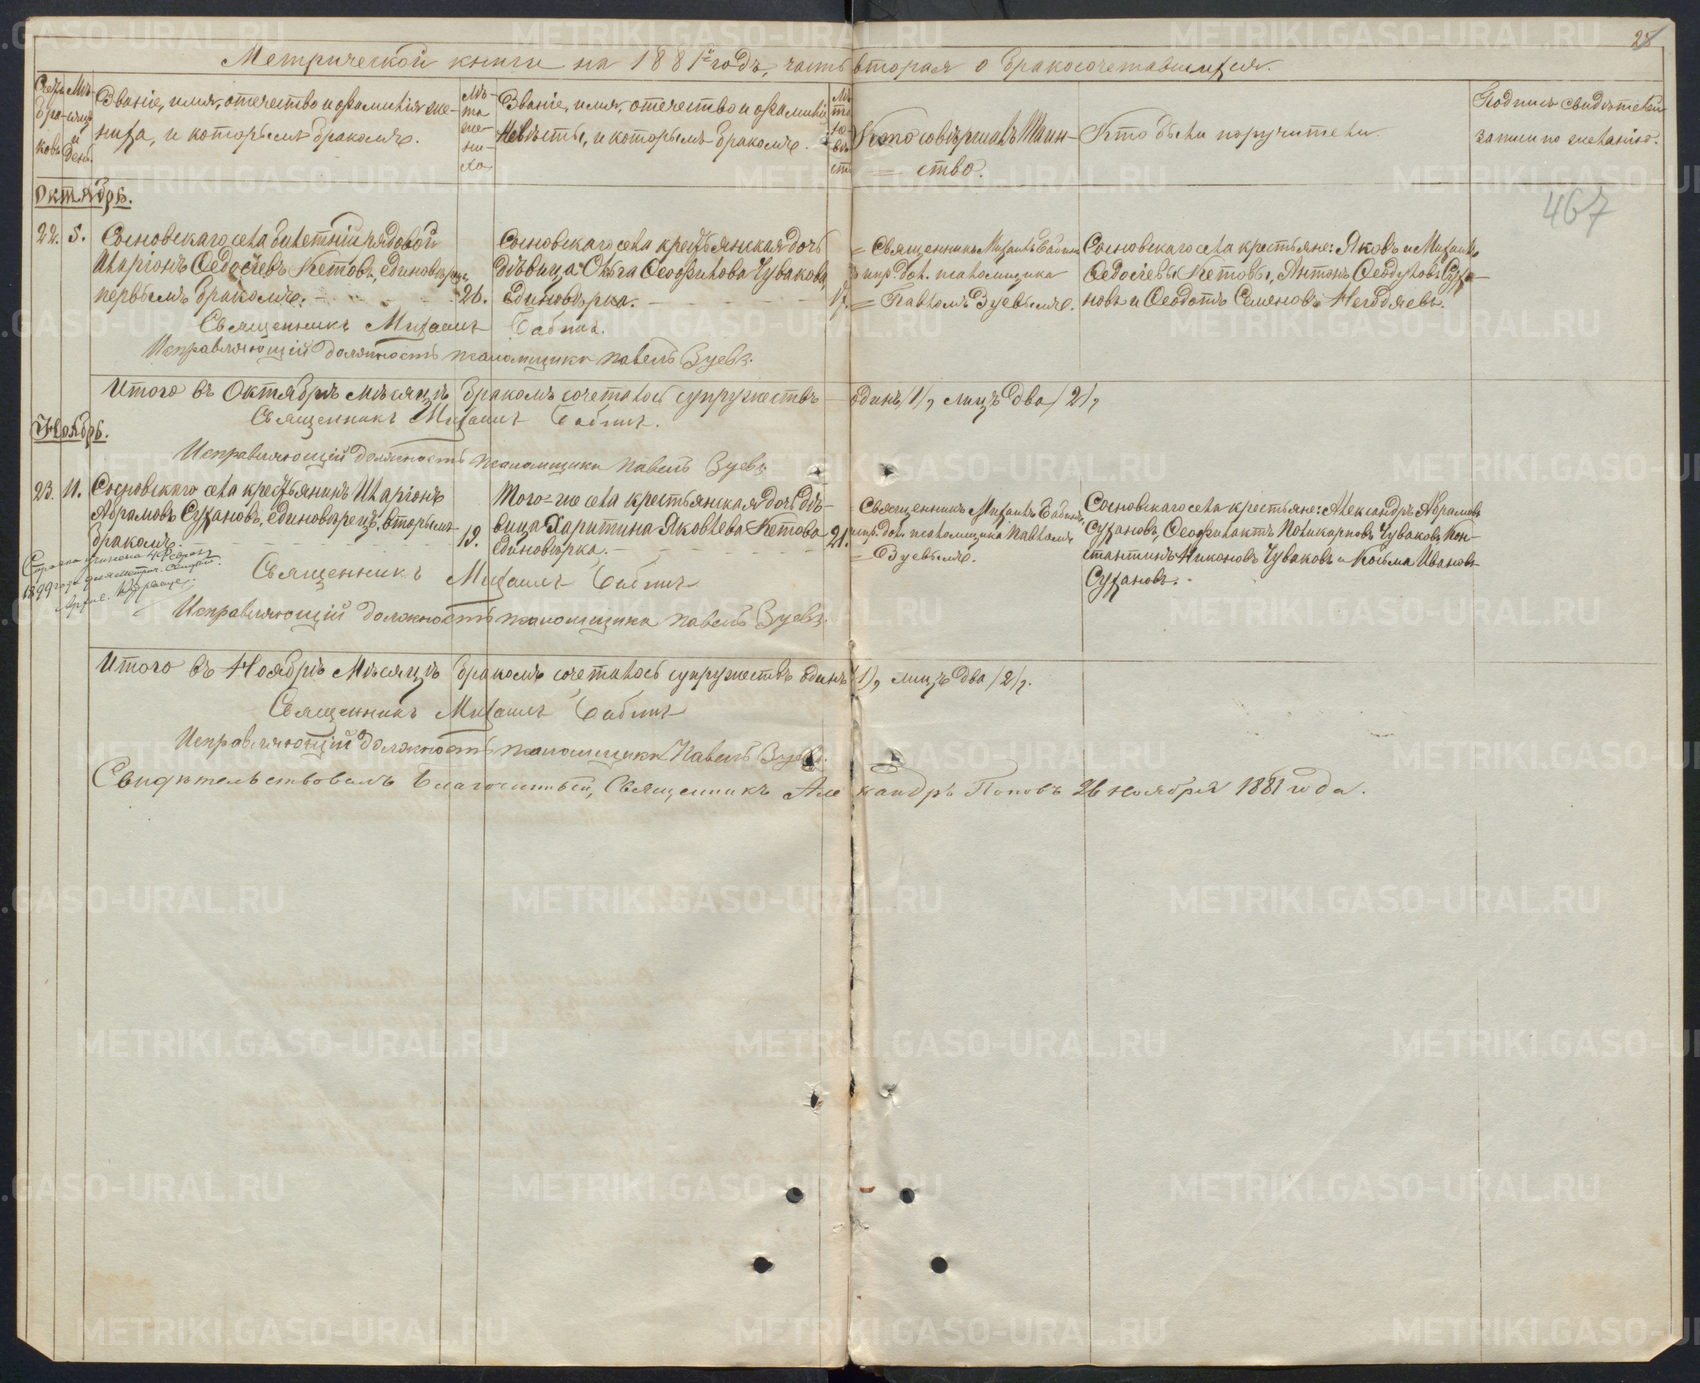 28
Метрической книги на 1881й годъ, часть вторая о бракосочетавшихся.
Счетъ браковъ
Мѣсяцъ и день
Званіе, имя, отечество и фамилія же-
ниха, и которымъ бракомъ.
Лѣ-
та
же-
ни-
ха
Званіе, имя, отечество и фамилія
невѣсты, и которымъ бракомъ.
Лѣ
та
не-
вѣ
сты
Кто совершалъ Таин-
ство.
Кто были поручители
Подпись свидѣтелей
записи по желанію.
Октябрь.
467
22. 5.
Сосновскаго села билетный рядовой
Иларіонъ Ѳедосѣевъ Кетовъ, единовѣрецъ,
первымъ бракомъ.
26.
Сосновскаго села крестьянская дочь
дѣвица Ольга Ѳеофилова Чувакова,
единовѣрка.
17.
Священникъ Михаилъ Бабинъ
испр. дол. псаломщика
Павломъ Зуевымъ.
Сосновскаго села крестьяне: Яковъ и Михаилъ
Ѳедосѣевы Кетовы, Антонъ Ѳеодуловъ Суха-
новъ и Ѳеодотъ Семеновъ Негодяевъ.
Священникъ Михаилъ Бабинъ.
Исправляющій должность псаломщика Павелъ Зуевъ.
Итого въ Октябрѣ мѣсяцѣ бракомъ сочеталось супружествъ одинъ /1/, лицъ два /2/,
Священникъ Михаилъ Бабинъ.
Ноябрь.
Исправляющій должность псаломщика Павелъ Зуевъ
23. 11.
Сосновскаго села крестьянинъ Иларіонъ
Абрамовъ Сухановъ, единовѣрецъ, вторымъ
бракомъ.
19.
Того-же села крестьянская дочь дѣ-
вица Харитина Яковлева Кетова
единовѣрка.
21.
Священникъ Михаилъ Бабинъ,
испр. дол. псаломщика Павломъ
Зуевымъ.
Сосновскаго села крестьяне: Александръ Абрамовъ
Сухановъ, Ѳеофилактъ Поликарповъ Чуваковъ, Кон-
стантинъ Никоновъ Чуваковъ и Козьма Ивановъ
Сухановъ.
Справка учинена
1899 года для метрич.
Священникъ Михаилъ Бабинъ
Исправляющій должность псаломщика Павелъ Зуевъ.
Итого въ Ноябрѣ Мѣсяцѣ бракомъ сочеталось супружествъ одинъ /1/, лицъ два /2/.
Священникъ Михаилъ Бабинъ
Исправляющій должность псаломщика Павелъ Зуевъ.
Свидѣтельствовалъ Благочинный, Священникъ Александръ Поповъ 26 ноября 1881 года.
METRIKI.GASO-URAL.RU